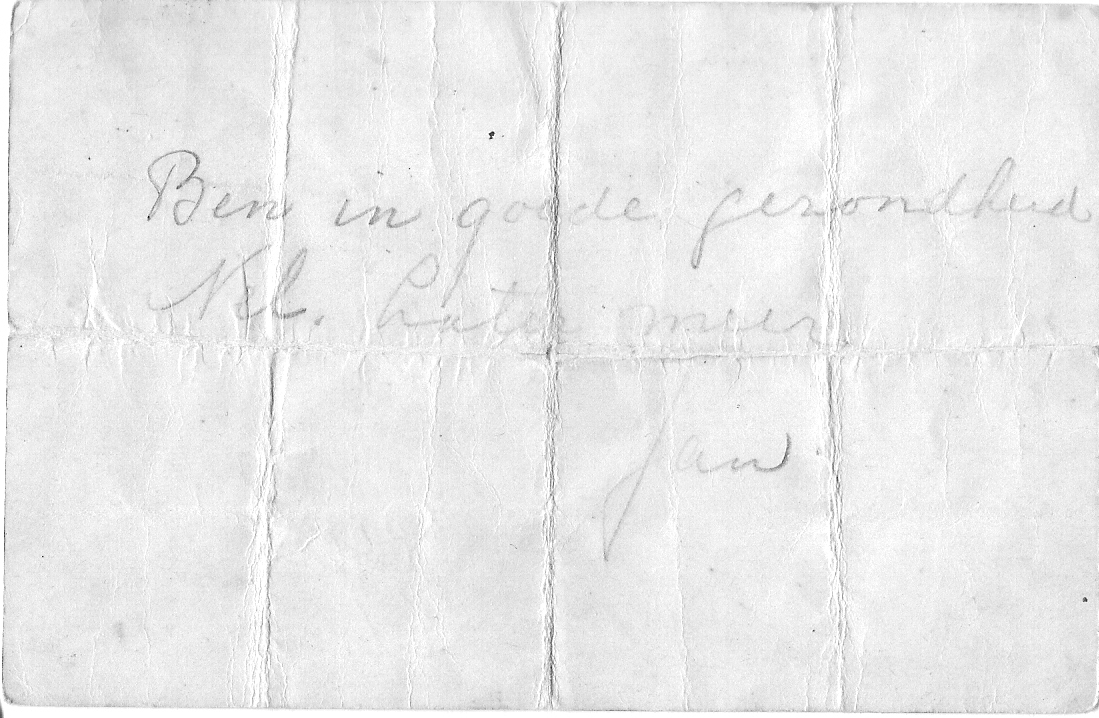 Ben in goede gezondheid
Nel. Later meer.
Jan